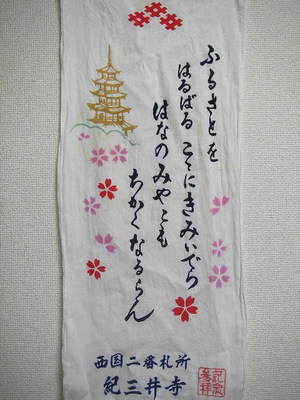 ふるさとを
はるばるこゝにきみいでら
はなのみやこも
ちかくなるらん
西国二番札所
紀三井寺
記念
参拝